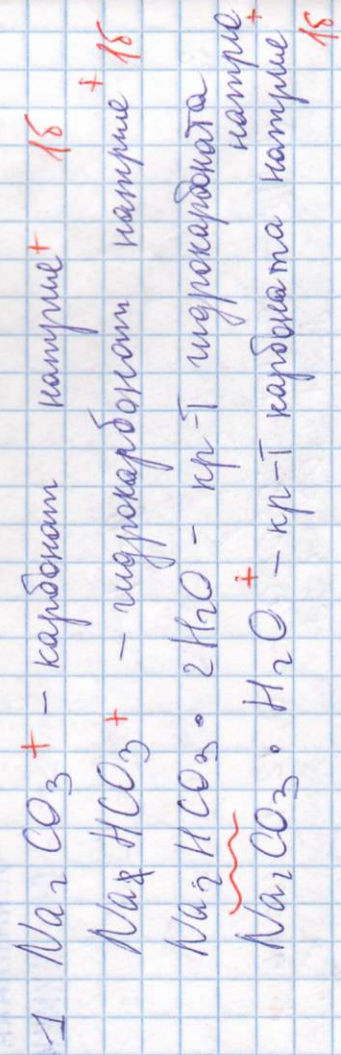 1 Na₂CO₃ + – карбонат натрие + 1б
NaHCO₃ + – гидрокарбонат натрие + 1б
Na₂HCO₃ · 2H₂O – кр-т гидрокарбоната натрие
Na₂CO₃ · H₂O + – кр-т карбоната натрие + 1б